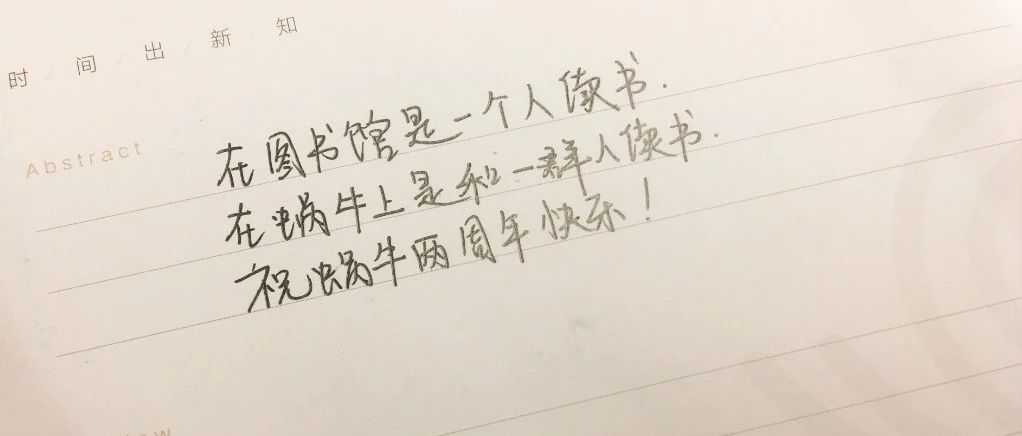 时/间/出/新/知
Abstract
在图书馆是一个人读书.
在蜗牛上是和一群人读书.
祝蜗牛两周年快乐!